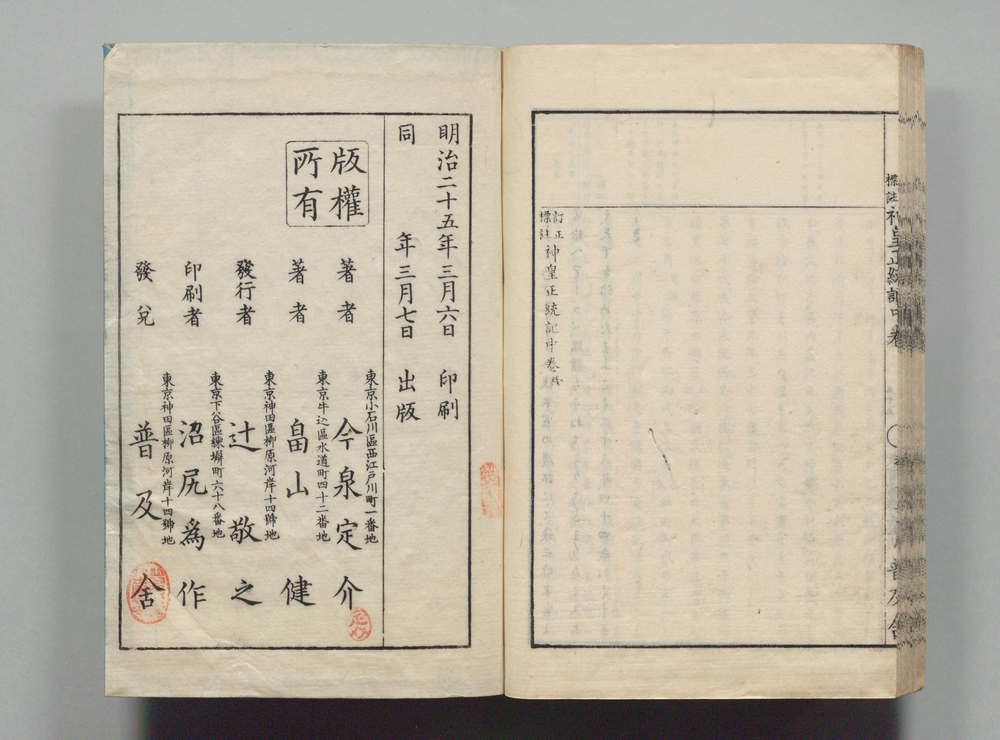 標註神皇正統記中卷
普及舍
訂正
標註
神皇正統記中卷終
明治二十五年三月六日 印刷
同 年三月七日 出版
版權
所有
東京小石川區西江戸川町一番地
著者 今泉定介
東京牛込區水道町四十二番地
著者 畠山健
東京神田區柳原河岸十四號地
發行者 辻敬之
東京下谷區練塀町六十八番地
印刷者 沼尻為作
東京神田區柳原河岸十四號地
發兌 普及舍